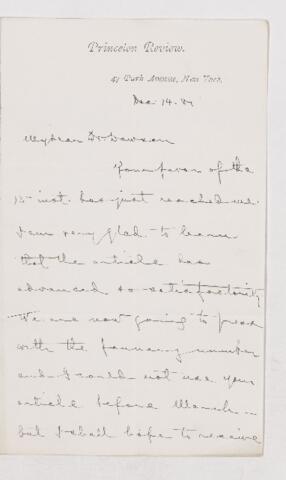 Princeton Review.
41 Park Avenue, New York.
Dec. 14.
My dear Dr Dawson
Your favor of the
inst. has just reached me.
I am very glad to learn
that the article has
advanced so satisfactorily
We are now going to press
with the January number
and I could not use your
article before March
but I shall hope to receive